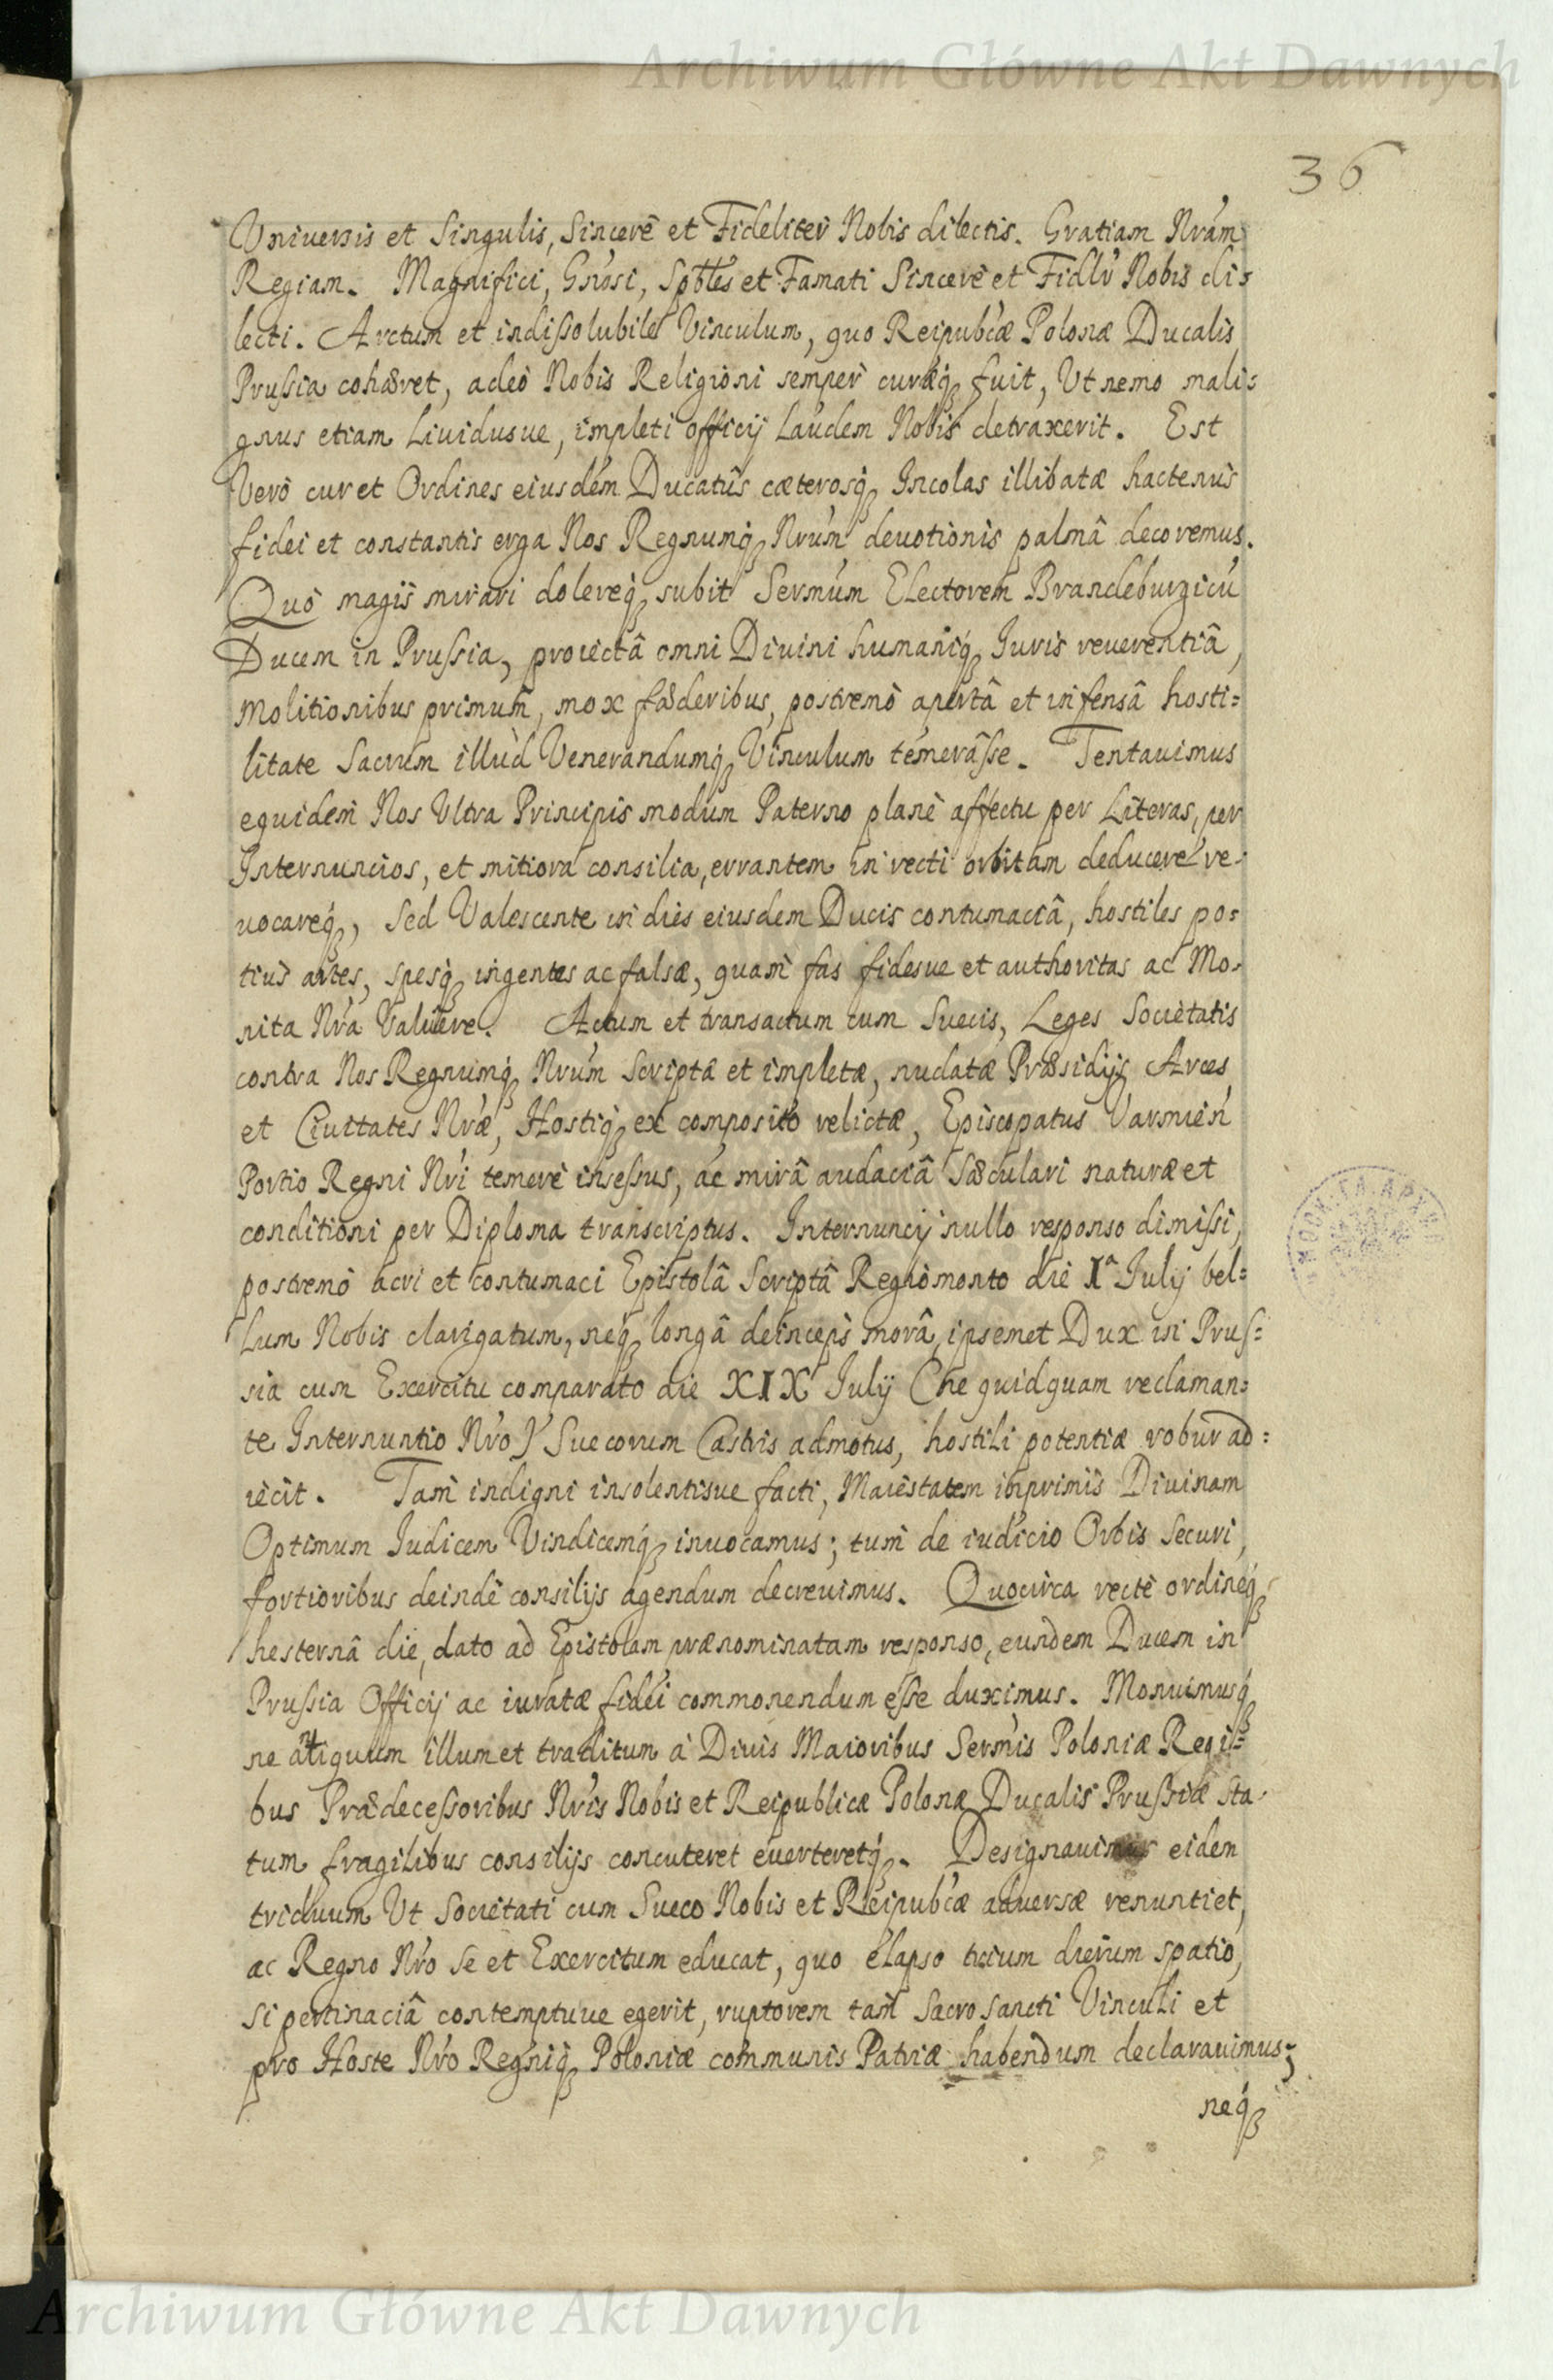 Archiwum Główne Akt Dawnych
36
Vniuersis et Singulis, Sincerè et Fideliter Nobis dilectis. Gratiam Nrám
Regiam. Magnifici, Gnósi, Spbtles et Famati Sincerè et Fidlr Nobis di=
lecti. Arctum et indissolubile Vinculum, quo Reipubcæ Polonæ Ducalis
Prussia cohæret, adeò Nobis Religioni semper curæq; fuit, Vt nemo mali=
gnus etiam Liuidusue, impleti officij Laudem Nobis detraxerit. Est
Verò cur et Ordines eiusdem Ducatûs cæterosq; Incolas illibatæ hactenus
fidei et constantis erga Nos Regnumq; Nrúm deuotionis palmâ decoremus.
Quò magis mirari dolereq; subit Sermúm Electorem Brandeburgicũ
Ducem in Prussia, proiectâ omni Diuini humaniq; Iuris reuerentiâ,
Molitionibus primum, mox fæderibus, postremò apertâ et infensâ hosti=
litate Sacrum illud Venerandumq; Vinculum temerâsse. Tentauimus
equidem Nos Vltra Principis modum Paterno planè affectu per Literas, per
Internuncios, et mitiora consilia, errantem in recti orbitam deducere re=
uocareq;, Sed Valescente in dies eiusdem Ducis contumaciâ, hostiles po=
tius artes, spesq; ingentes ac falsæ, quam fas fidesue et authoritas ac Mo=
nita Nrá Valuêre. Actum et transactum cum Suecis, Leges Societatis
contra Nos Regnumq; Nrúm Scriptæ et impletæ, nudatæ Præsidijs Arces
et Ciuitates Nræ, Hostiq; ex composito relictæ, Episcopatus Varmień
Portio Regni Nri temerè insessus, ac mirâ audaciâ Sæculari naturæ et
conditioni per Diploma transcriptus. Internuncij nullo responso dimissi,
postremò acri et contumaci Epistolâ Scriptâ Regiomonto die Iª Iulij bel=
Lum Nobis clarigatum, neq; longâ deinceps morâ, ipsemet Dux in Prus=
sia cum Exercitu comparato die XIX Iulij (Ne quidquam reclaman=
te Internuntio Nro) Suecorum Castris admotus, hostili potentiæ robur ad=
iecit. Tam indigni insolentisue facti, Maiestatem inprimis Diuinam
Optimum Iudicem Vindicemq; inuocamus; tum de iudicio Orbis Securi,
fortioribus deindè consilijs agendum decreuimus. Quocirca rectè ordineq;
hesternâ die, dato ad Epistolam prænominatam responso, eundem Ducem in
Prussia Officij ac iuratæ fidei commonendum esse duximus. Monuimusq;
ne antiquum illum et traditum à Diuis Maioribus Sermis Poloniæ Regi=
bus Prædecessoribus Nris Nobis et Reipublicæ Polonæ Ducalis Prussiæ sta=
tum fragilibus consilijs concuteret euerteretq;. Designauimus eidem
triduum Vt Societati cum Sueco Nobis et Reipubcæ aduersæ renuntiet,
ac Regno Nro Se et Exercitum educat, quo elapso trium dierum spatio,
si pertinaciâ contemptuue egerit, ruptorem tam Sacrosancti Vinculi et
pro Hoste Nro Regniq; Poloniæ communis Patriæ habendum declarauimus;
neq;
Archiwum Główne Akt Dawnych